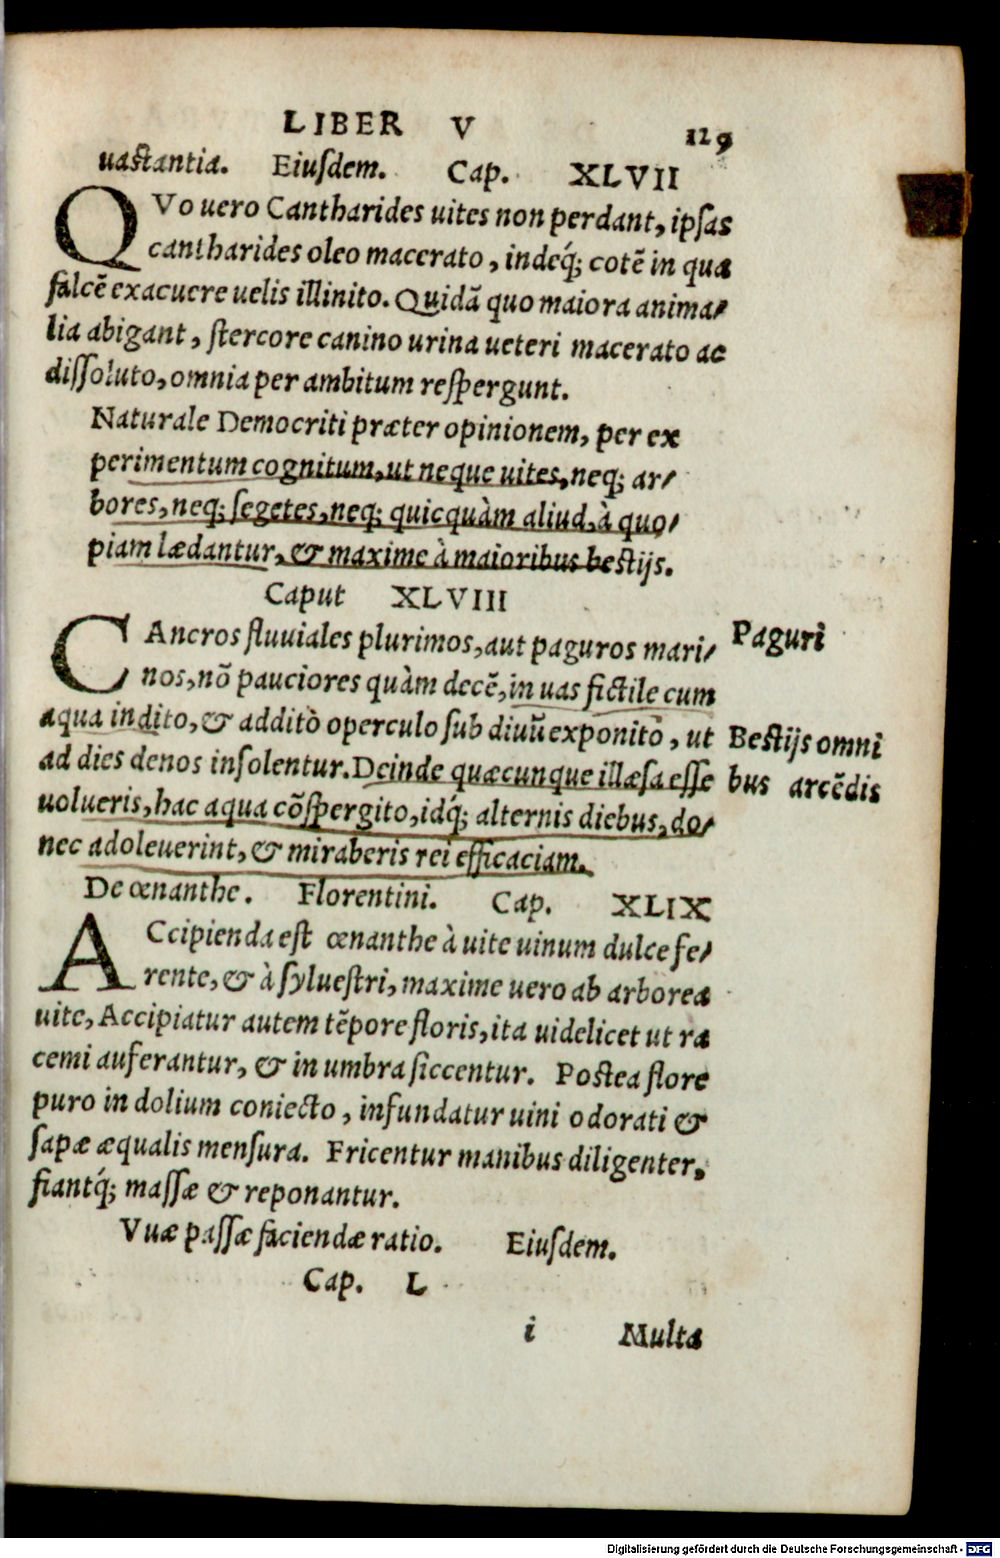 LIBER V 129
uastantia. Eiusdem. Cap. XLVII
QVo uero Cantharides uites non perdant, ipsas
cantharides oleo macerato, indeq́; cotē in qua
falcē exacuere uelis illinito. Quidā quo maiora anima-
lia abigant, stercore canino urina ueteri macerato ac
dissoluto, omnia per ambitum respergunt.
Naturale Democriti præter opinionem, per ex
perimentum cognitum, ut neque uites, neq; ar-
bores, neq; segetes, neq; quicquàm aliud, à quo-
piam lædantur, & maxime à maioribus bestijs.
Caput XLVIII
CAncros fluuiales plurimos, aut paguros mari-
nos, nō pauciores quàm decē, in uas fictile cum
aqua indito, & addito operculo sub diuū exponito, ut
ad dies denos insolentur. Deinde quæcunque illæsa esse
uolueris, hac aqua cōspergito, idq́; alternis diebus, do-
nec adoleuerint, & miraberis rei efficaciam.
Paguri
Bestijs omni
bus arcēdis
De œnanthe. Florentini. Cap. XLIX
ACcipienda est œnanthe à uite uinum dulce fe-
rente, & à syluestri, maxime uero ab arborea
uite, Accipiatur autem tēpore floris, ita uidelicet ut ra
cemi auferantur, & in umbra siccentur. Postea flore
puro in dolium coniecto, infundatur uini odorati &
sapæ æqualis mensura. Fricentur manibus diligenter,
fiantq́; massæ & reponantur.
Vuæ passæ faciendæ ratio. Eiusdem.
Cap. L
i Multa
Digitalisierung gefördert durch die Deutsche Forschungsgemeinschaft - DFG